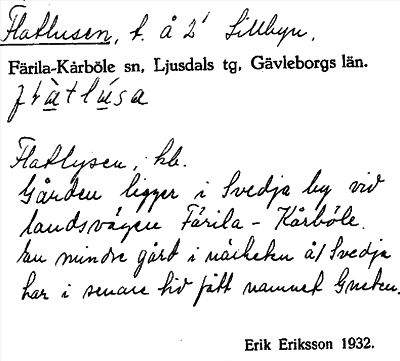 Flatlusen, t. å 2' Lillbyn,
Färila-Kårböle sn, Ljusdals tg, Gävleborgs län.
Flatlysen, hb.
Gården ligger i Svedja by vid
landsvägen Färila - Kårböle.
En mindre gård i närheten af Svedja
har i senare tid fått namnet Gneten.
Erik Eriksson 1932.